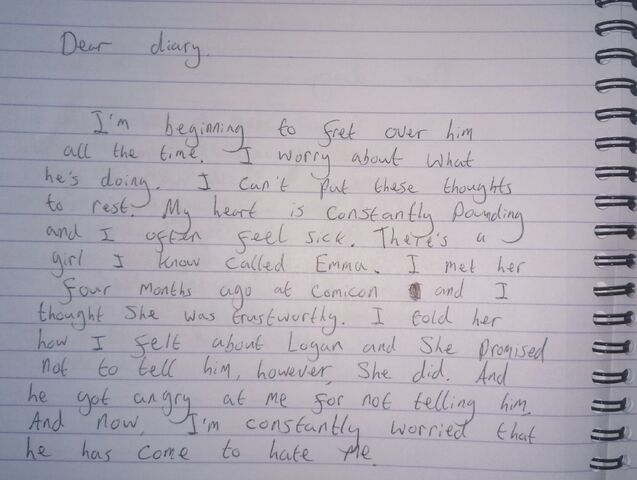 Dear diary.
I'm beginning to fret over him
all the time. I worry about what
he's doing. I can't put these thoughts
to rest. My heart is constantly pounding
and I often feel sick. There's a
girl I know called Emma. I met her
four months ago at comicon and I
thought she was trustworthy. I told her
how I felt about Logan and She promised
not to tell him, however, She did. And
he got angry at me for not telling him.
And now, I'm constantly worried that
he has come to hate me.